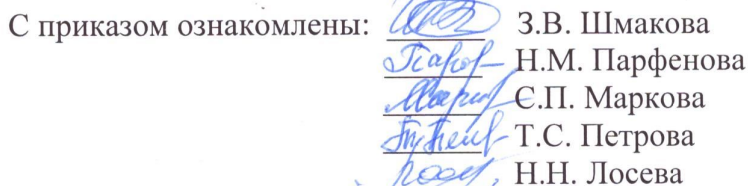 С приказом ознакомлены: З.В. Шмакова
Н.М. Парфенова
Е.П. Маркова
Т.С. Петрова
Н.Н. Лосева